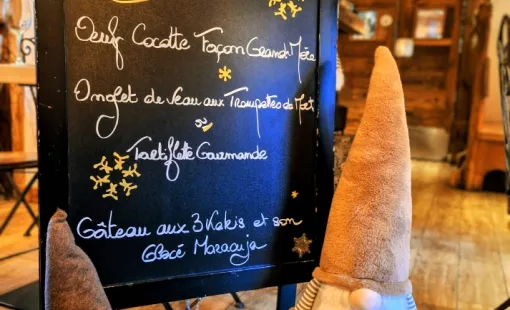 Oeuf Cocotte Façon Grand Mère
Onglet de Veau aux Trompettes de Mort
ou
Tartiflette Gourmande
Gâteau aux 3 Kakis et son
Glacé Maracuja